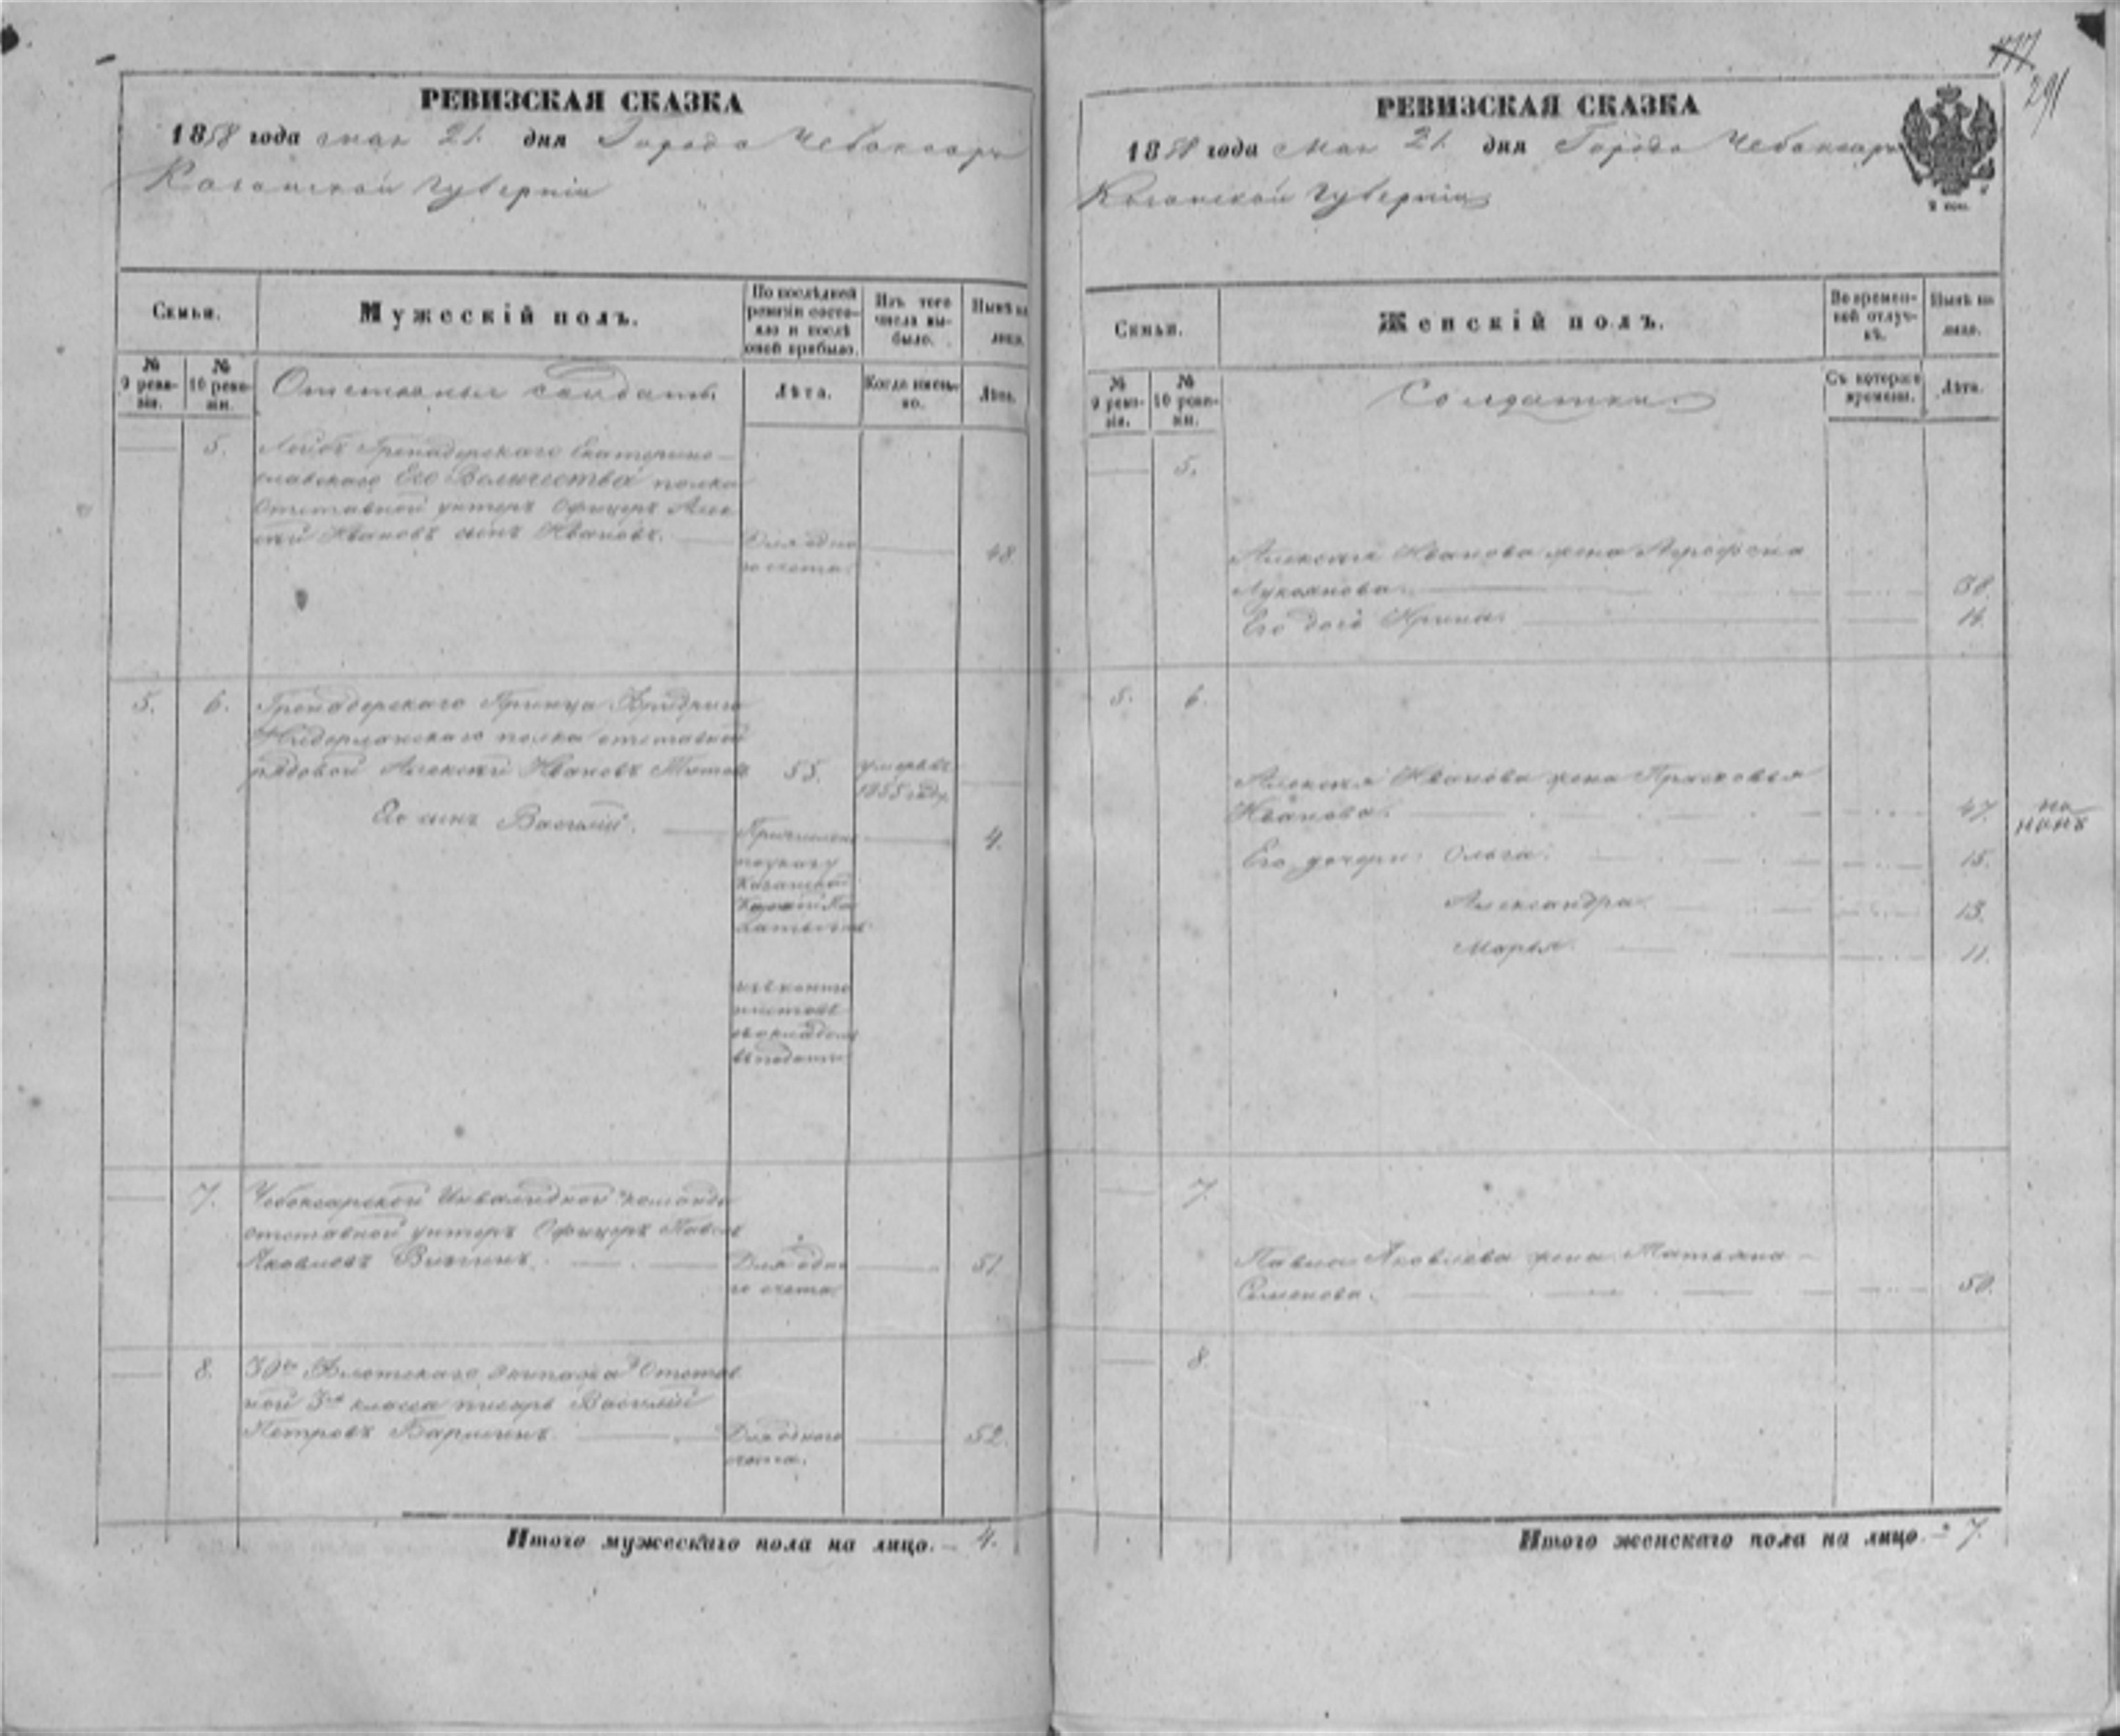 РЕВИЗСКАЯ СКАЗКА
1858 года мая 21 дня Города Чебоксаръ
Казанской губерніи
Семьи.
Мужескій полъ.
По послѣдней ревизіи состояло и послѣ оной прибыло.
Изъ того числа выбыло.
Нынѣ на лицо.
№ 9 ревизіи.
№ 10 ревизіи.
Отставные солдаты.
Лѣта.
Когда именно.
Лѣта.
5.
Лейбъ Гренадерскаго Екатерино-
славскаго Его Величества полка
Отставной унтеръ Офицеръ Алек
сѣй Ивановъ сынъ Ивановъ.
Для одно
го счета.
48.
5. 6.
Гренадерскаго Принца Фридриха
Нидерланскаго полка отставной
рядовой Алексѣй Ивановъ
55.
умеръ въ
1855 году
Его сынъ Василій.
Причисленъ
по указу
Казанской
Казенной Па
латы
4.
7.
Чебоксарской Инвалидной команды
отставной унтеръ Офицеръ Павелъ
Яковлевъ
Для одно
го счета.
51.
8.
Флотскаго Экипажа Отстав
ной 3го класса писарь Василій
Петровъ
Для одного
счета.
52.
Итого мужескаго пола на лицо. 4.
291
РЕВИЗСКАЯ СКАЗКА
1858 года мая 21 дня Города Чебоксаръ
Казанской губерніи
Семьи.
Женскій полъ.
Во временной отлучкѣ.
Нынѣ на лицо.
№ 9 ревизіи.
№ 10 ревизіи.
Солдатки
Съ котораго времени.
Лѣта.
5.
Алексѣя Иванова жена Агрофена
Лукоянова. 38.
Его дочь Ирина. 14.
5. 6.
Алексѣя Иванова жена Прасковья
Иванова. 47.
Его дочери: Ольга. 15.
Александра 13.
Марья. 11.
7.
Павла Яковлева жена Татьяна
Семенова. 50.
8.
Итого женскаго пола на лицо 7.